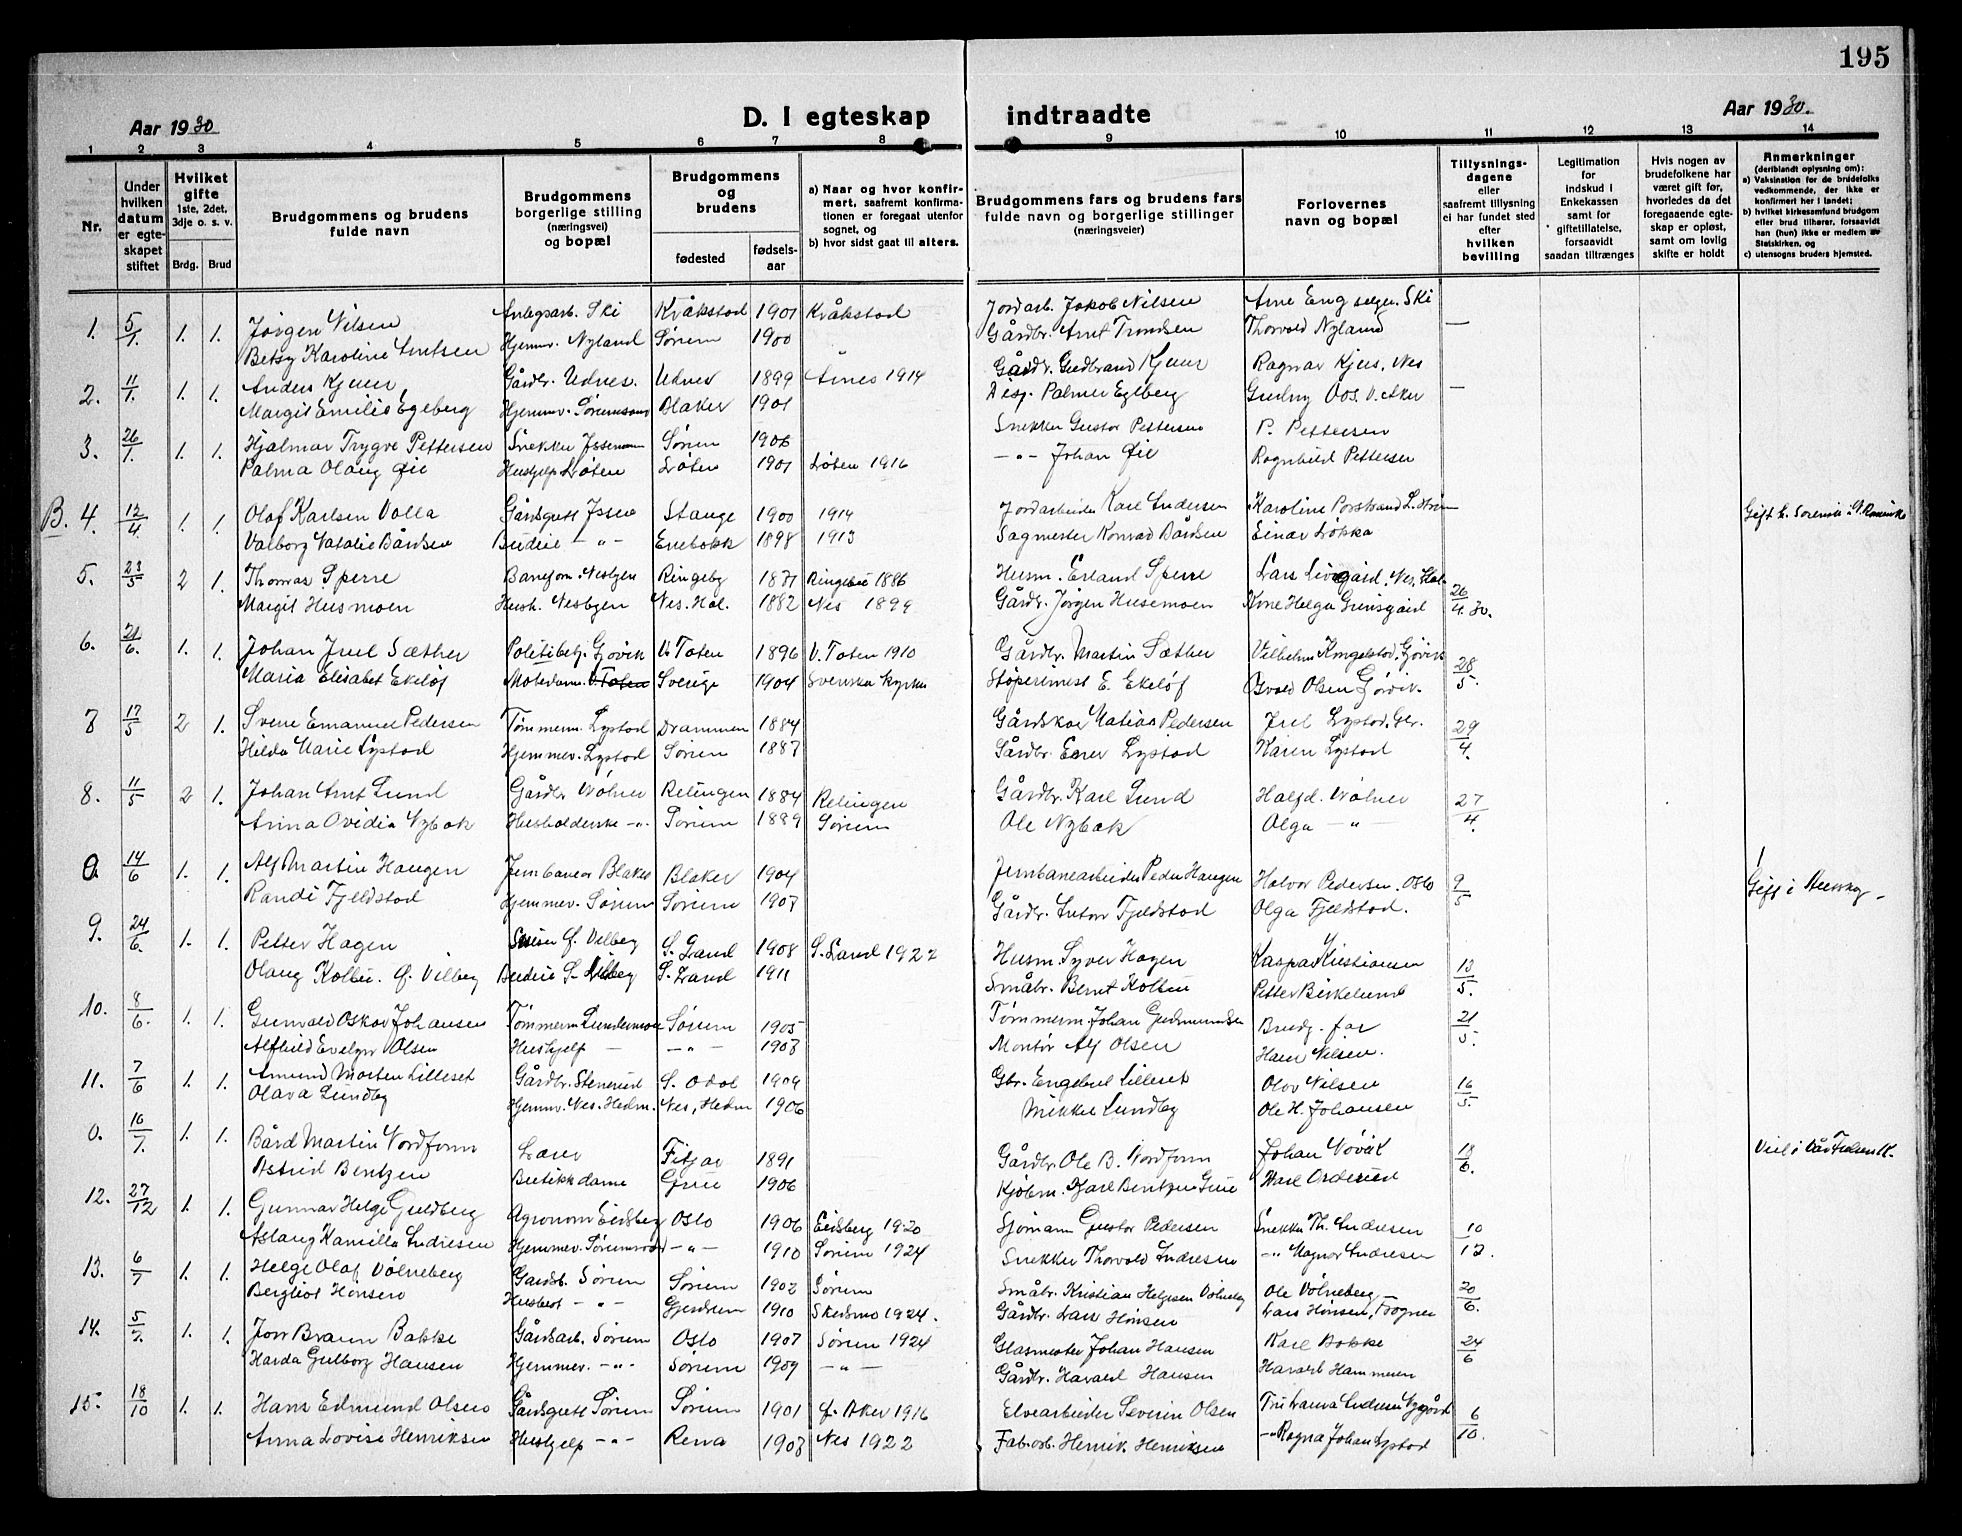 195
Aar 1930
D. I egteskap indtraadte
Aar 1930.
1 2 3 4 5 6 7 8 9 10 11 12 13 14
Nr.
Under hvilken datum er egteskapet stiftet
Hvilket gifte
1ste, 2det, 3dje o. s. v.
Brdg. Brud
Brudgommens og brudens fulde navn
Brudgommens og brudens borgerlige stilling (næringsvei) og bopæl
Brudgommens og brudens
fødested
fødselsaar
a) Naar og hvor konfirmert, saafremt konfirmationen er foregaat utenfor sognet, og
b) hvor sidst gaat til alters.
Brudgommens fars og brudens fars fulde navn og borgerlige stillinger (næringsveier)
Forlovernes navn og bopæl
Tillysningsdagene eller saafremt tillysning ei har fundet sted efter hvilken bevilling
Legitimation for indskud i Enkekassen samt for giftetillatelse, forsaavidt saadan tiltrænges
Hvis nogen av brudefolkene har været gift før, hvorledes da det foregaaende egteskap er opløst, samt om lovlig skifte er holdt
Anmerkninger (deriblandt oplysning om):
a) Vaksination for de brudefolks vedkommende, der ikke er konfirmert her i landet;
b) hvilket kirkesamfund brudgom eller brud tilhører, forsaavidt han (hun) ikke er medlem av Statskirken, og
c) utensogns bruders hjemsted.
1. 5/1. 1. 1. Jørgen Nilsen Anlegsarb. Ski Kråkstad 1901 Kråkstad Jordarb. Jakob Nilsen Arne Eng selger. Ski —
Betsy Karoline Hjemmv. Nyland Sørum 1900 Gårdbr. Arnt Trondsen Thorvald Nyland
2. 11/1. 1. 1. Anders Kjuus Gårdbr. Udnes. Udnes 1899 Årnes 1914 Gårdbr. Gudbrand Kjuus Ragnar Kjus, Nes —
Margit Emilie Egeberg Hjemmv. Sørumsand Blaker 1901 Disp. Palmer Egeberg Gudny Oos. V. Aker
3. 26/1. 1. 1. Hjalmar Trygve Pettersen Snekker Sørum 1906 Snekker Gustav Pettersen P. Pettersen
Palma Olaug Øie Hushjelp Løten Løten 1901 Løten 1916 —"— Johan Øie Ragnhild Pettersen
B. 4. 12/4 1. 1. Olaf Karlsen Volla Gårdsgutt Stange 1900 1914 Jordarbeider Karl Andersen Karoline
Valborg Natalie Bårdsen Budeie —"— Enebakk 1898 1913 Sagmester Konrad Bårdsen Einar Løkka
5. 23/5 2 1. Thomas Sperre Baneform. Nesbyen Ringeby 1871 Ringebu 1886 Husm. Erland Sperre Lars
Margit Husmoen Hush. Nesbyen Nes. Hal. 1882 Nes 1899 Gårdbr. Jørgen Husemoen Helga Grimsgård 26/4.30.
6. 21/6. 1. 1. Johan Juel Sæther Politibetj. Gjøvik V. Toten 1896 V. Toten 1910 Gårdbr. Martin Sæther Vilhelm Kongelstad, Gjøvik 28/5.
Maria Elisabet Ekeløf Motedame. V. Toten Sverige 1904 Svenska kyrka Støperimest E. Ekeløf Osvald Olsen Gjøvik.
7 17/5 2 1. Sverre Emanuel Pedersen Tømmerm. Lystad Drammen 1884 Gårdskar Matias Pedersen Juel Lystad. 29/4.
Hilda Marie Lystad Hjemmev. Lystad Sørum 1887 Gårdbr. Lystad Karen Lystad
8. 11/5 2 1. Johan Arnt Lund Gårdbr. Vølner Relingen 1884 Relingen Gårdbr. Karl Lund Halfd. Vølner 27/4.
Anna Ovidia Nybak Husholderske —"— Sørum 1889 Sørum Ole Nybak Olga —"—
0. 14/6 1. 1. Alf Martin Haugen Jernbanear Blaker Blaker 1904 Jernbanearbeider Peder Haugen Halvor Pedersen. Oslo 9/5 Gift i
Randi Fjeldstad Hjemmev. Sørum Sørum 1907 Gårdbr. Anton Fjeldstad Olga Fjeldstad.
9. 24/6. 1. 1. Petter Hagen Vilberg S. Land 1908 S. Land 1922 Husm Syver Hagen Kaspar Kristiansen 13/5.
Olaug Kolbu. Vilberg Budeie S. Land 1911 Småbr. Bernt Petter Birkelund
10. 8/6. 1. 1. Gunvald Oskar Johansen Tømmerm Sørum 1905 Tømmerm. Johan Gudmundsen Brudg. far 21/5.
Alfhild Evelyn Olsen Hushjelp — —"— 1907 Montør Alf Olsen Hans Nilsen.
11. 7/6 1. 1. Amund Morten Lilleset Gårdbr. Stenerud S. Odal 1904 Gbr. Engebret Lilleset Olav Nilsen 16/5.
Olava Lundby Hjemmv. Nes. Hedm. Nes, Hedm 1906 Mikkel Lundby Ole H. Johansen
0. 16/7. 1. 1. Bård Martin Nordfonn Lærer Fitjar 1891 Gårdbr. Ole B. Nordfonn Johan 18/6. Viel i
Astrid Bentzen Butikkdame Grue 1906 Kjøbm. Bentzen Grue Karl Orderud
12. 27/12 1. 1. Gunnar Helge Guldberg Agronom Eidsberg Oslo 1906 Eidsberg 1920 Sjømann Gustav Pedersen Snekker Th. Andresen 10/12.
Aslaug Kamilla Andresen Hjemmev. Sørumsand —"— 1910 Sørum 1924 Snekker Thorvald Andresen —"— Magnar Andresen
13. 6/7 1. 1. Helge Olaf Vølneberg Gårdsb. Sørum Sørum 1902 Sørum Småbr. Kristian Helgesen Vølneberg Ole Vølneberg 20/6.
Bergliot Hønsen —"— Gjerdrum 1910 Skedsmo 1924. Gårdbr. Lars Hønsen Lars Hønsen, Frogner
14. 5/7. 1. 1. Jon Braun Bakke Gårdsarb. Sørum Oslo 1907 Sørum 1924 Glasmester Johan Hansen Karl Bakke 24/6
Harda Gulborg Hansen Hjemmev. —"— Sørum 1909 —"— Gårdbr. Harald Hansen Harald Hammeren
15. 18/10 1. 1. Hans Edmund Olsen Gårdsgutt Sørum Sørum 1901 Aker 1916 Elvearbeider Severin Olsen 6/10.
Anna Lovise Henriksen Hushjelp —"— Rena 1903 Nes 1922 Fab.arb. Henrik Henriksen —"— Ragna Johan Lystad